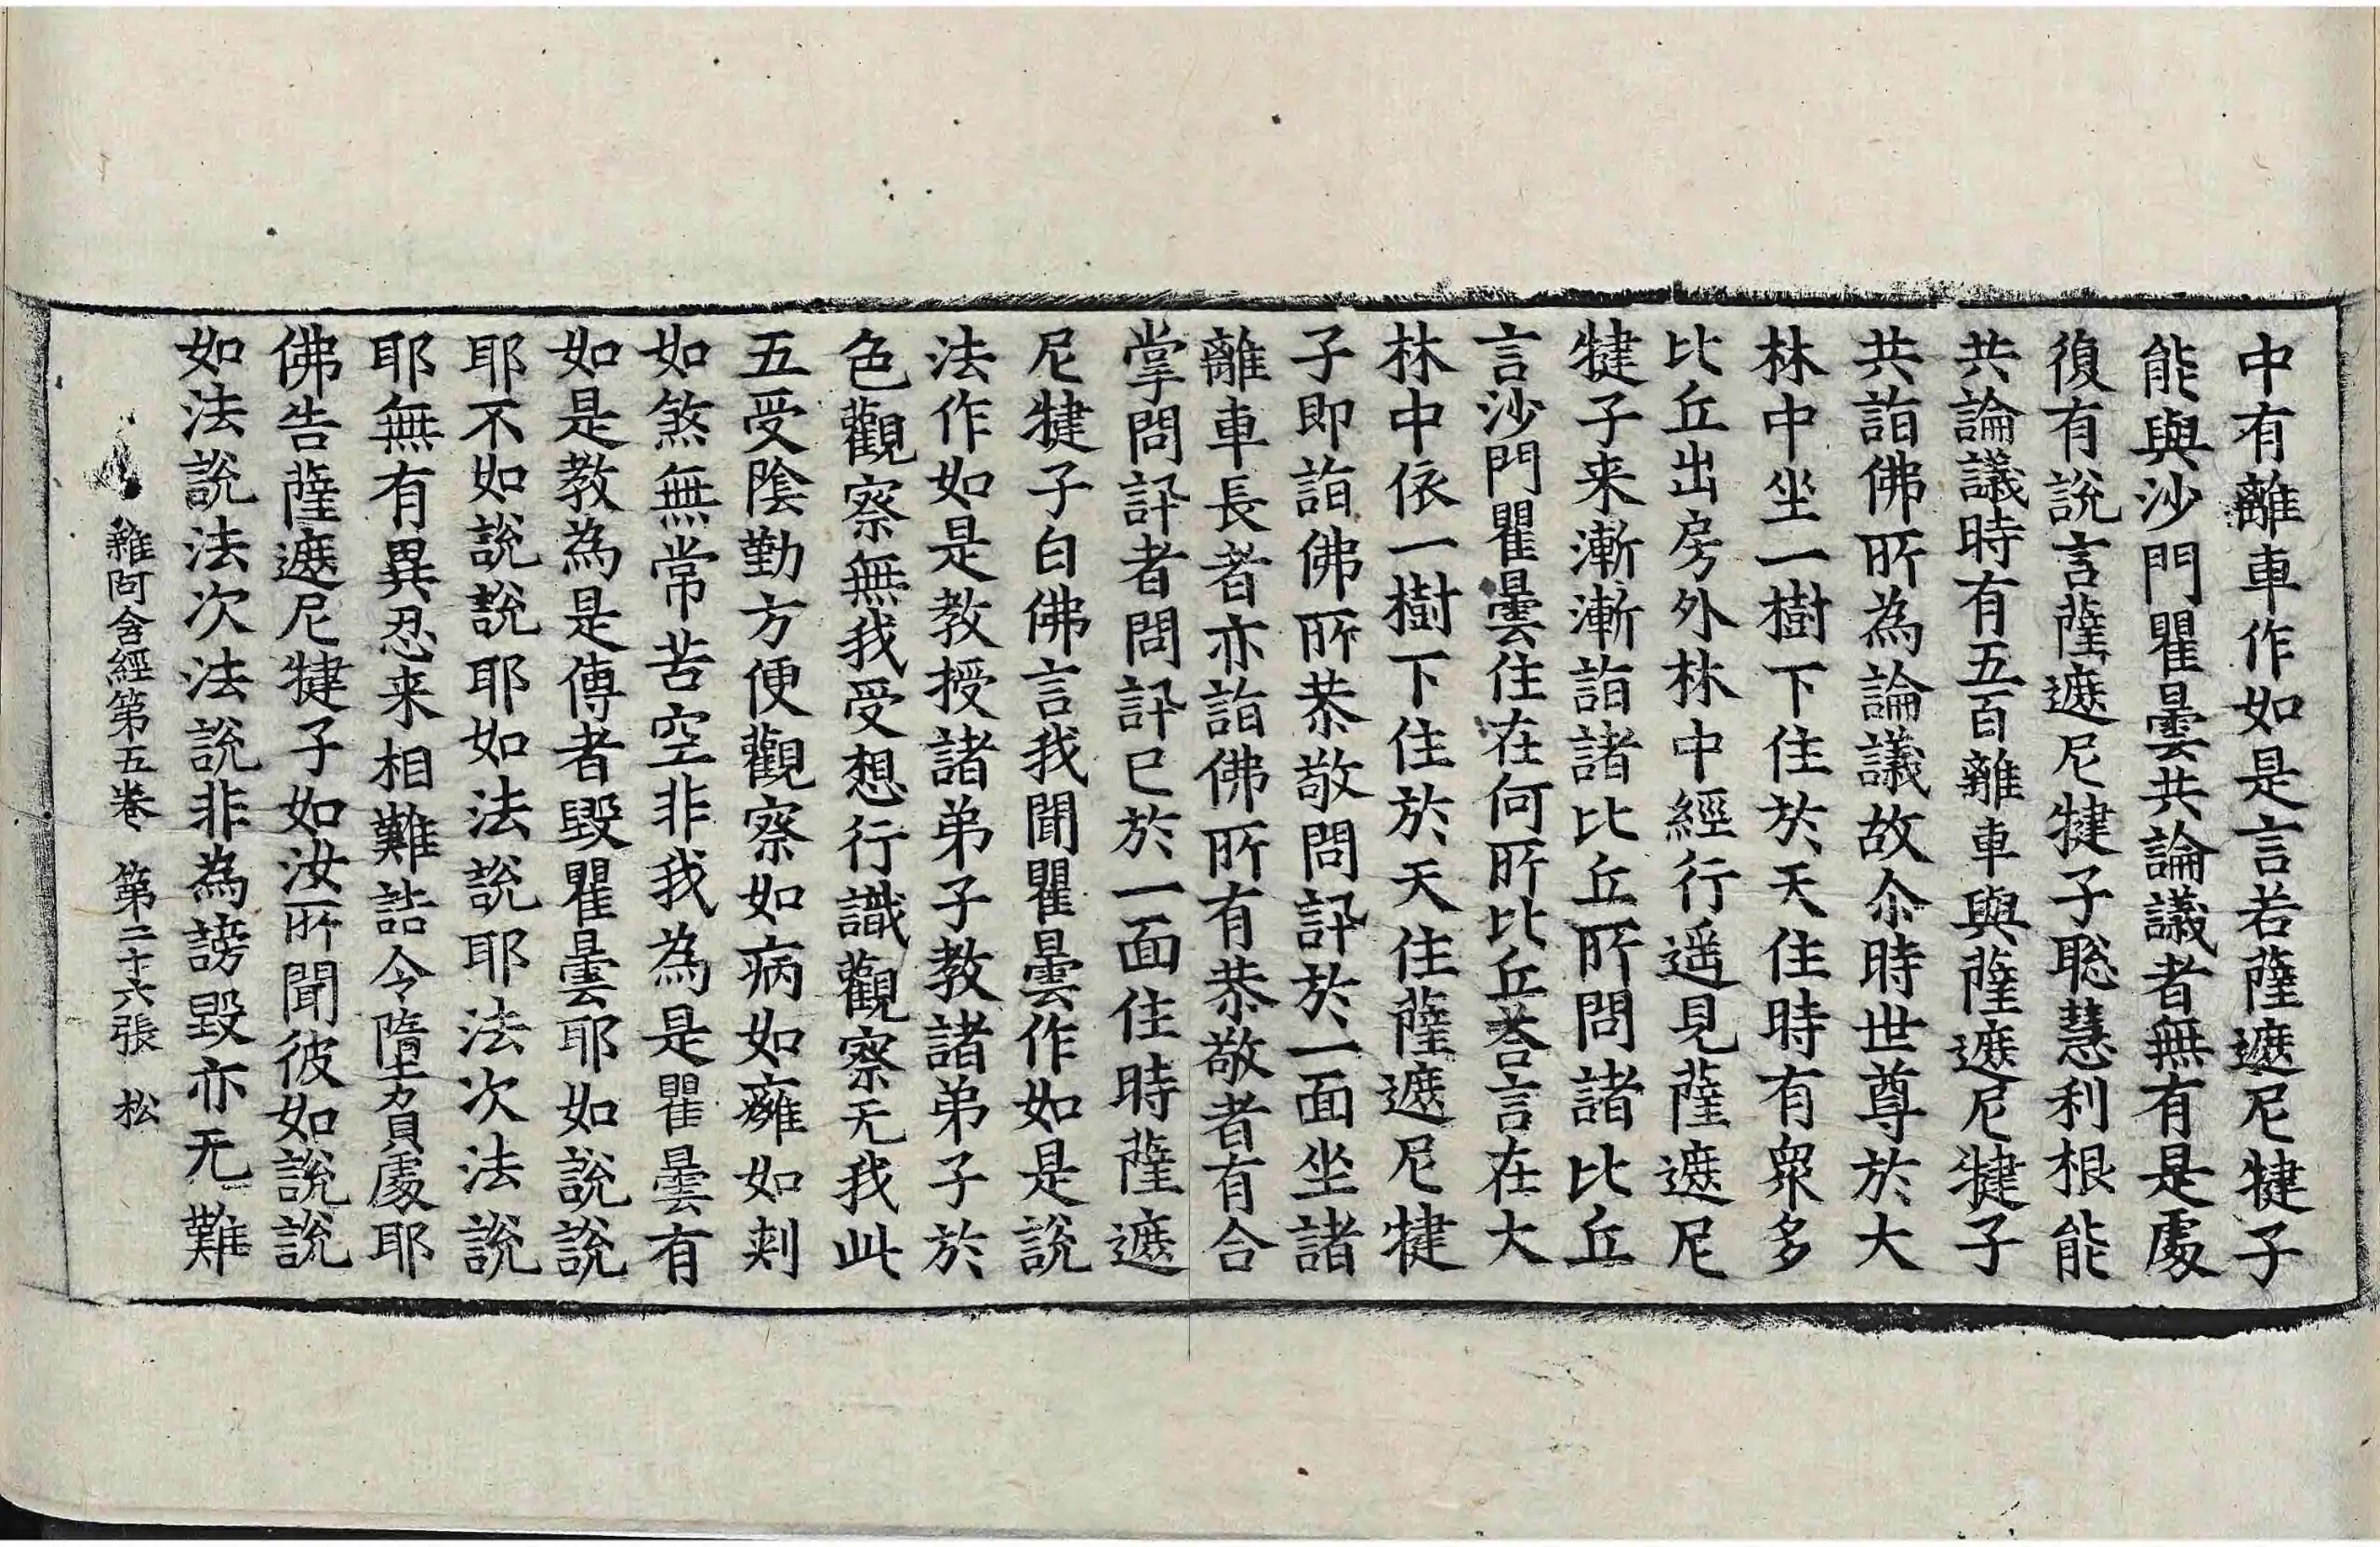 中有離車作如是言若薩遮尼犍子
能與沙門瞿曇共論議者無有是處
復有說言薩遮尼犍子聡慧利根能
共論議時有五百離車與薩遮尼犍子
共詣佛所為論議故尒時世尊於大
林中坐一樹下住於天住時有衆多
比丘出房外林中經行遥見薩遮尼
犍子来漸漸詣諸比丘所問諸比丘
言沙門瞿曇住在何所比丘荅言在大
林中依一樹下住於天住薩遮尼犍
子即詣佛所恭敬問訊於一面坐諸
離車長者亦詣佛所有恭敬者有合
掌問訊者問訊已於一面住時薩遮
尼犍子白佛言我聞瞿曇作如是說
法作如是教授諸弟子教諸弟子於
色觀察無我受想行識觀察无我此
五受陰勤方便觀察如病如癰如刾
如煞無常苦空非我為是瞿曇有
如是教為是傳者毀瞿曇耶如說說
耶不如說說耶如法說耶法次法說
耶無有異忍来相難詰令隨負處耶
佛告薩遮尼犍子如汝所聞彼如說說
如法說法次法說非為謗毀亦无難
雜阿含經第五卷 第二十六張 松